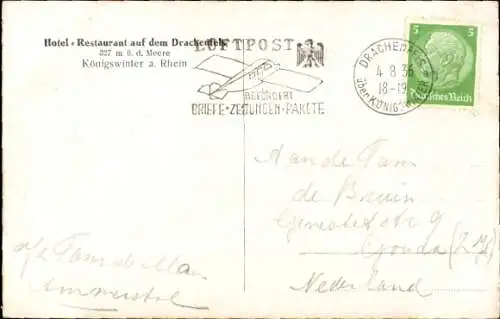 Hotel • Restaurant auf dem Drachenfels
327 m ü. d. Meere
Königswinter a. Rhein
LUFTPOST
BEFÖRDERT
BRIEFE • ZEITUNGEN • PAKETE
DRACHENFELS
4 8 36
18-19
über KÖNIGSWINTER
5 5
Deutsches Reich
Aan de Fam
de Bruin
9
Gouda (Z.H.)
Nederland
Fam de Man
Ammerstol